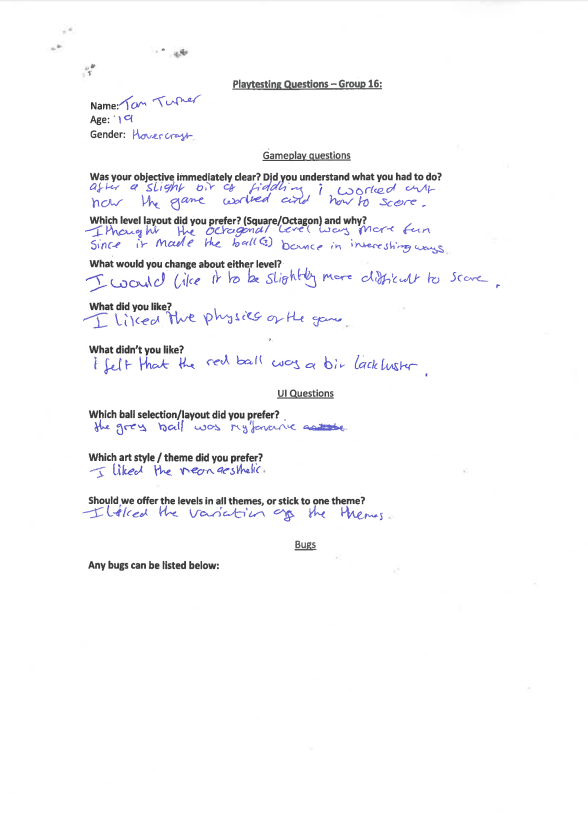 Playtesting Questions – Group 16:
Name: Tom Turner
Age: 19
Gender: Hovercraft
Gameplay questions
Was your objective immediately clear? Did you understand what you had to do?
after a slight bit of fiddling i worked out
how the game worked and how to score.
Which level layout did you prefer? (Square/Octagon) and why?
I thought the octagonal level was more fun
since it made the ball(s) bounce in interesting ways.
What would you change about either level?
I would like it to be slightly more difficult to score.
What did you like?
I liked the physics of the game
What didn't you like?
i felt that the red ball was a bit lackluster.
UI Questions
Which ball selection/layout did you prefer?
the grey ball was my favourite
Which art style / theme did you prefer?
I liked the neon aesthetic.
Should we offer the levels in all themes, or stick to one theme?
I liked the variation of the themes.
Bugs
Any bugs can be listed below: